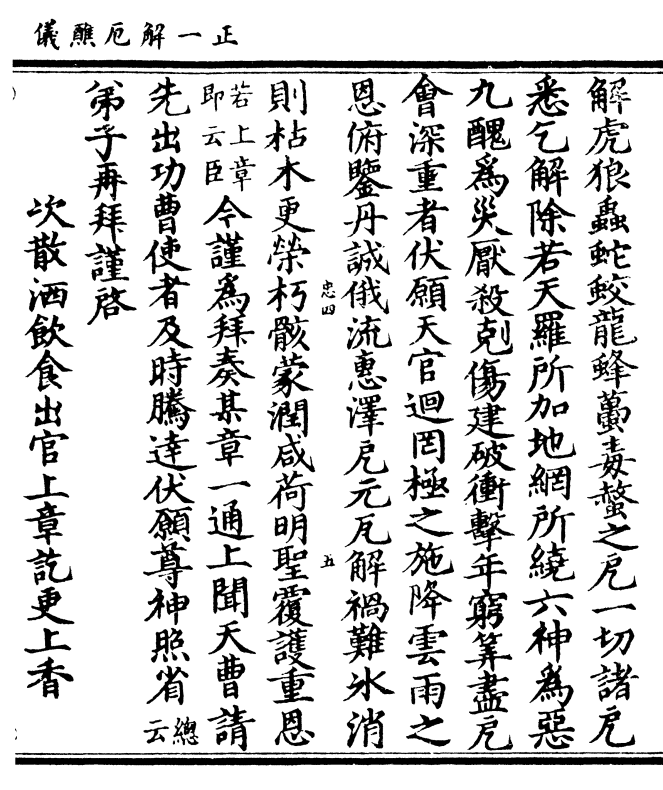 正一解厄醮儀
解虎狼蟲蛇蛟龍蜂蠆毒螫之厄一切諸厄
悉乞解除若天羅所加地網所繞六神爲惡
九醜爲災厭殺剋傷建破衝擊年窮筭盡厄
會深重者伏願天官迴罔極之施降雲雨之
恩俯鑒丹誠俄流惠澤厄元瓦解禍難氷消
忠四
五
則枯木更榮朽骸蒙潤咸荷明聖覆護重恩
若上章即云臣今謹爲拜奏某章一通上聞天曹請
先出功曹使者及時騰達伏願尊神照省總云
弟子再拜謹啓
次散洒飲食出官上章訖更上香